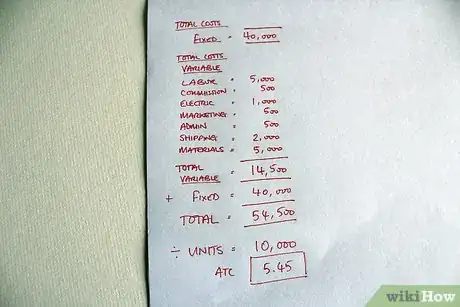 TOTAL COSTS
FIXED = 40,000
TOTAL COSTS
VARIABLE
LABOUR = 5,000
COMMISSION = 500
ELECTRIC = 1,000
MARKETING = 500
ADMIN = 500
SHIPPING = 2,000
MATERIALS = 5,000
TOTAL VARIABLE = 14,500
+ FIXED = 40,000
TOTAL = 54,500
÷ UNITS = 10,000
ATC 5.45
wikiHow